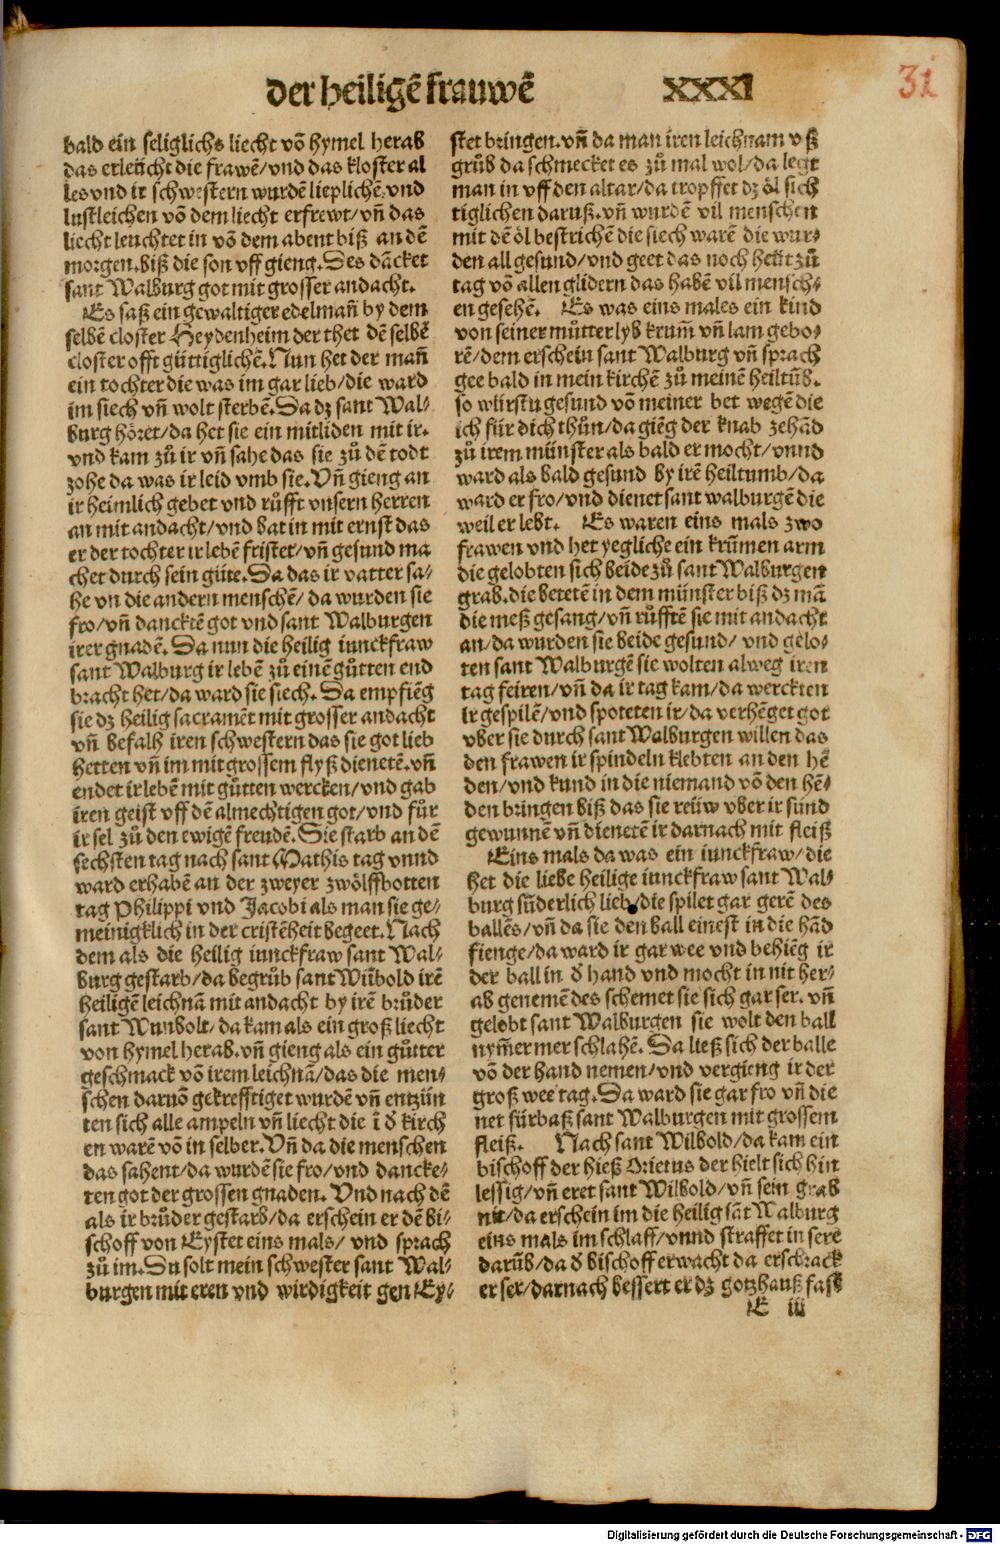 der heiligẽ frauwẽ XXXI
31
bald ein seliglichs liecht võ hymel herab
das erleücht die frawẽ/vnd das kloster al
les vnd ir schwestern wurdẽ lieplichẽ.vnd
lustleichen võ dem liecht erfrewt/vñ das
liecht leuchtet in võ dem abent biß an dẽ
morgen.biß die son vff gieng.Des dãcket
sant Walburg got mit grosser andacht.
Es saß ein gewaltiger edelmañ by dem
selbẽ closter Heydenheim der thet dẽ selbẽ
closter offt güttiglichẽ.Nun het der mañ
ein tochter die was im gar lieb/die ward
im siech vñ wolt sterbẽ.Da dz sant Wal-
burg höret/da het sie ein mitliden mit ir.
vnd kam zů ir vñ sahe das sie zů dẽ todt
zohe da was ir leid vmb sie.Vñ gieng an
ir heimlich gebet vnd růfft vnsern herren
an mit andacht/vnd bat in mit ernst das
er der tochter ir lebẽ fristet/vñ gesund ma
chet durch sein güte.Da das ir vatter sa-
he vn die andern menschẽ/da wurden sie
fro/vñ dancktẽ got vnd sant Walburgen
irer gnadẽ.Da nun die heilig iunckfraw
sant Walburg ir lebẽ zů einẽ gůtten end
bracht het/da ward sie siech.Da empfiẽg
sie dz heilig sacramẽt mit grosser andacht
vñ befalh iren schwestern das sie got lieb
hetten vñ im mit grossem flyß dienetẽ.vñ
endet ir lebẽ mit gůtten wercken/vnd gab
iren geist vff dẽ almechtigen got/vnd für
ir sel zů den ewigẽ freudẽ.Sie starb an dẽ
sechsten tag nach sant Mathis tag vnnd
ward erhabẽ an der zweyer zwölffbotten
tag Philippi vnd Jacobi als man sie ge-
meinigklich in der cristẽheit begeet.Nach
dem als die heilig iunckfraw sant Wal-
burg gestarb/da begrůb sant Wũbold irẽ
heiligẽ leichnã mit andacht by irẽ brůder
sant Wunbolt/da kam als ein groß liecht
von hymel herab.vñ gieng als ein gůtter
geschmack võ irem leichnã/das die men-
schen daruõ gekrefftiget wurdẽ vñ entzün
ten sich alle ampeln vñ liecht die ĩ d̕ kirch
en warẽ võ in selber.Vñ da die menschen
das sahent/da wurdẽ sie fro/vnd dancke-
ten got der grossen gnaden.Vnd nach dẽ
als ir brůder gestarb/da erschein er dẽ bi-
schoff von Eystet eins mals/ vnd sprach
zů im.Du solt mein schwester sant Wal-
burgen mit eren vnd wirdigkeit gen Ey-
stet bringen.vñ da man iren leichnam vß
grůb da schmecket es zů mal wol/da legt
man in vff den altar/da tropffet dz öl sich
tiglichen daruß.vñ wurdẽ vil menschen
mit dẽ öl bestrichẽ die siech warẽ die wur-
den all gesund/vnd geet das noch heüt zů
tag võ allen glidern das habẽ vil mensch-
en gesehẽ. Es was eins males ein kind
von seiner můtter lyb krum̃ vñ lam gebo-
rẽ/dem erschein sant Walburg vñ sprach
gee bald in mein kirchẽ zů meinẽ heiltũb.
so würstu gesund võ meiner bet wegẽ die
ich für dich thůn/da giẽg der knab zehãd
zů irem münster als bald er mocht/vnnd
ward als bald gesund by irẽ heiltumb/da
ward er fro/vnd dienet sant walburgẽ die
weil er lebt. Es waren eins mals zwo
frawen vnd het yegliche ein krũmen arm
die gelobten sich beide zů sant Walburgen
grab.die betetẽ in dem münster biß dz mã
die meß gesang/vñ růfftẽ sie mit andacht
an/da wurden sie beide gesund/ vnd gelo-
ten sant Walburgẽ sie wolten alweg iren
tag feiren/vñ da ir tag kam/da werckten
ir gespilẽ/vnd spoteten ir/da verhẽget got
vber sie durch sant Walburgen willen das
den frawen ir spindeln klebten an den hẽ
den/vnd kund in die niemand võ den hẽ-
den bringen biß das sie reüw vber ir sünd
gewunnẽ vñ dienetẽ ir darnach mit fleiß
Eins mals da was ein iunckfraw/die
het die liebe heilige iunckfraw sant Wal-
burg sũderlich lieb/die spilet gar gerẽ des
ballẽs/vñ da sie den ball einest in die hãd
fienge/da ward ir gar wee vnd behiẽg ir
der ball in d̕ hand vnd mocht in nit her-
ab genemẽ des schemet sie sich gar ser. vñ
gelobt sant Walburgen sie wolt den ball
nym̃er mer schlahẽ. Da ließ sich der balle
võ der hand nemen/vnd vergieng ir der
groß wee tag.Da ward sie gar fro vñ die
net fürbaß sant Walburgen mit grossem
fleiß. Nach sant Wilbold/da kam ein
bischoff der hieß Orietus der hielt sich hin
lessig/vñ eret sant Wilbold/vñ sein grab
nit/da erschein im die heilig sãt Walburg
eins mals im schlaff/vnnd straffet in sere
darũb/da d̕ bischoff erwacht da erschrack
er ser/darnach bessert er dz gotzhauß fast
E iii
Digitalisierung gefördert durch die Deutsche Forschungsgemeinschaft - DFG